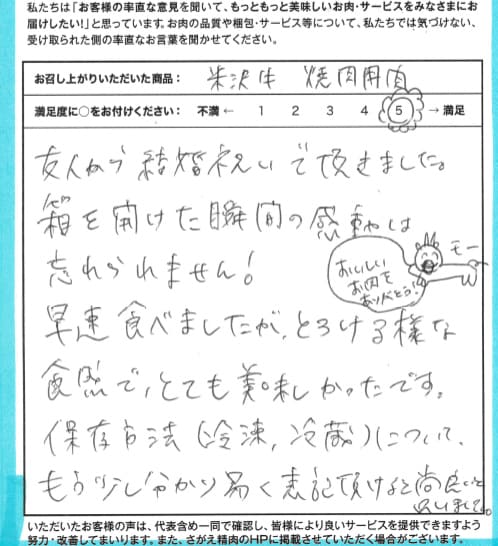 私たちは「お客様の率直な意見を聞いて、もっともっと美味しいお肉・サービスをみなさまにお
届けしたい!」と思っています。お肉の品質や梱包・サービス等について、私たちでは気づけない、
受け取られた側の率直なお言葉を聞かせてください。
お召し上がりいただいた商品： 米沢牛 焼肉用肉
満足度に○をお付けください： 不満 ← 1 2 3 4 5 → 満足
友人から結婚祝いで頂きました。
箱を開けた瞬間の感動は
忘れられません!
おいしい
お肉を
ありがとう!
モー
早速食べましたが、とろける様な
食感で、とても美味しかったです。
保存方法(冷凍、冷蔵)について、
もう少し分かり易く表記頂けると尚良いと
思いました。
いただいたお客様の声は、代表含め一同で確認し、皆様により良いサービスを提供できますよう
努力・改善してまいります。また、さがえ精肉のHPに掲載させていただく場合がございます。